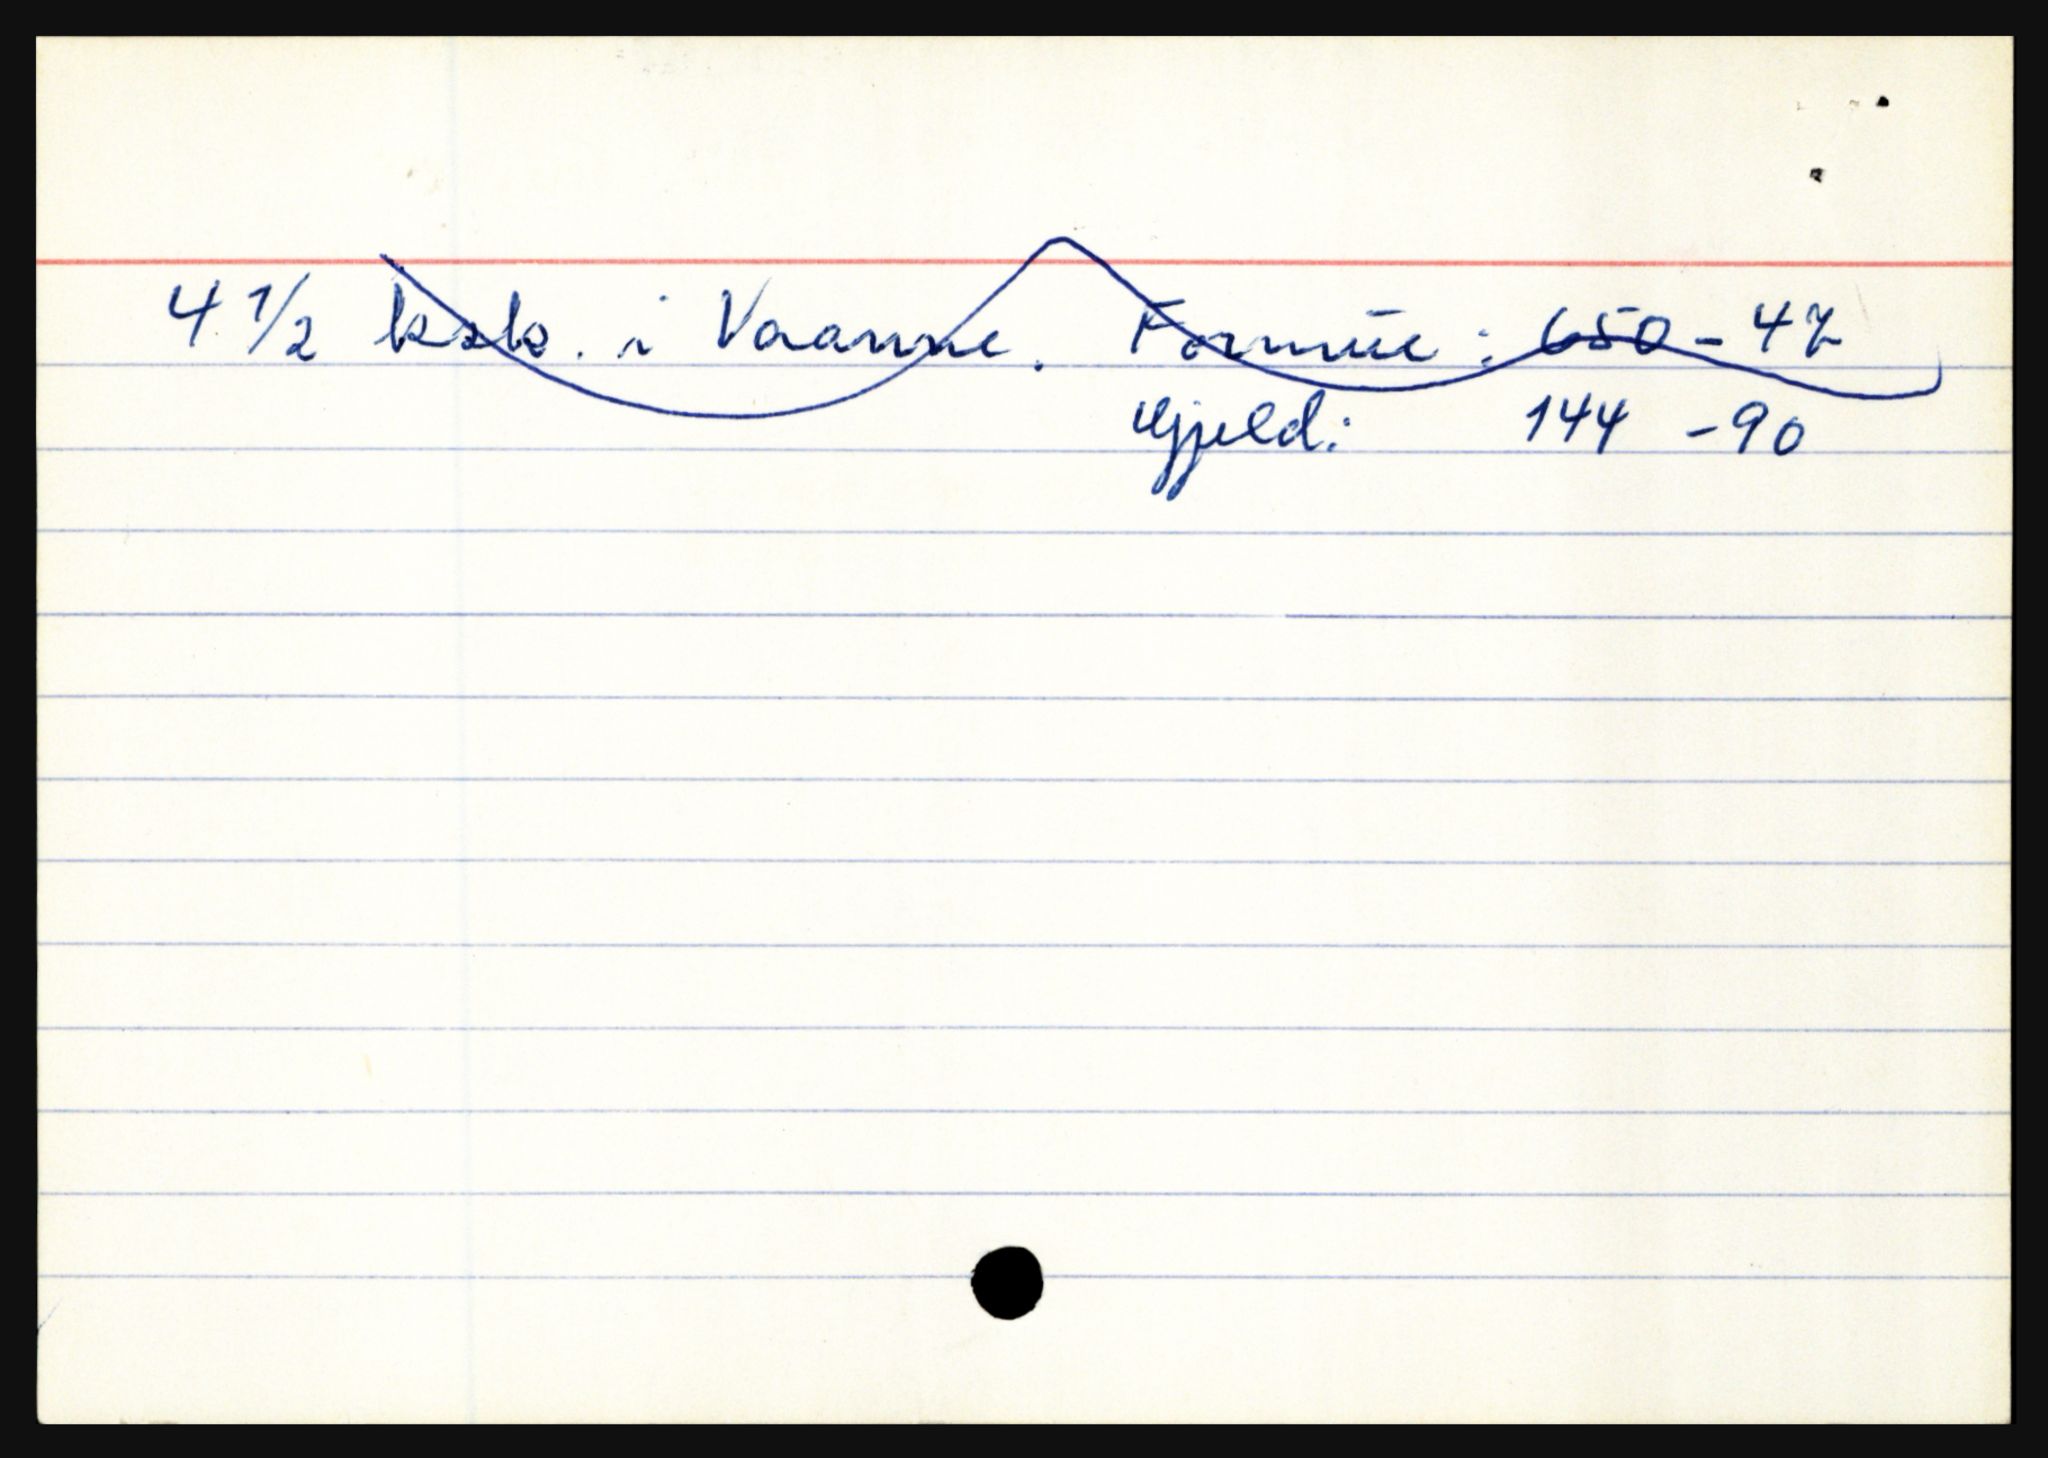 4 1/2 kalk. i Vaanne. Formue: 650 - 47
Gjeld: 144 - 90